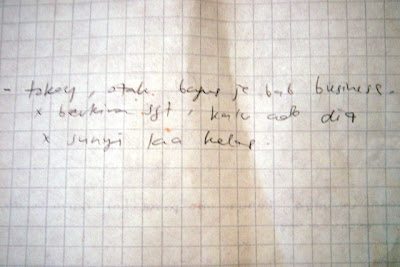 - tokey, otak bagus je bab business.
x berkira sgt, kalo ado dia
x sunyi laa kelas.